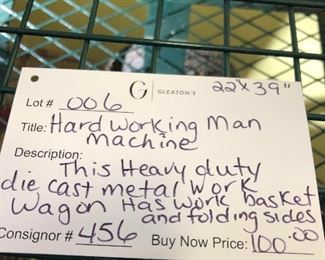 G | GLEATON'S 22 x 39"
Lot # 006
Title: Hard working Man
Machine
Description:
This Heavy duty
die cast metal work
Wagon Has work basket
and folding sides
Consignor # 456 Buy Now Price: 100.00